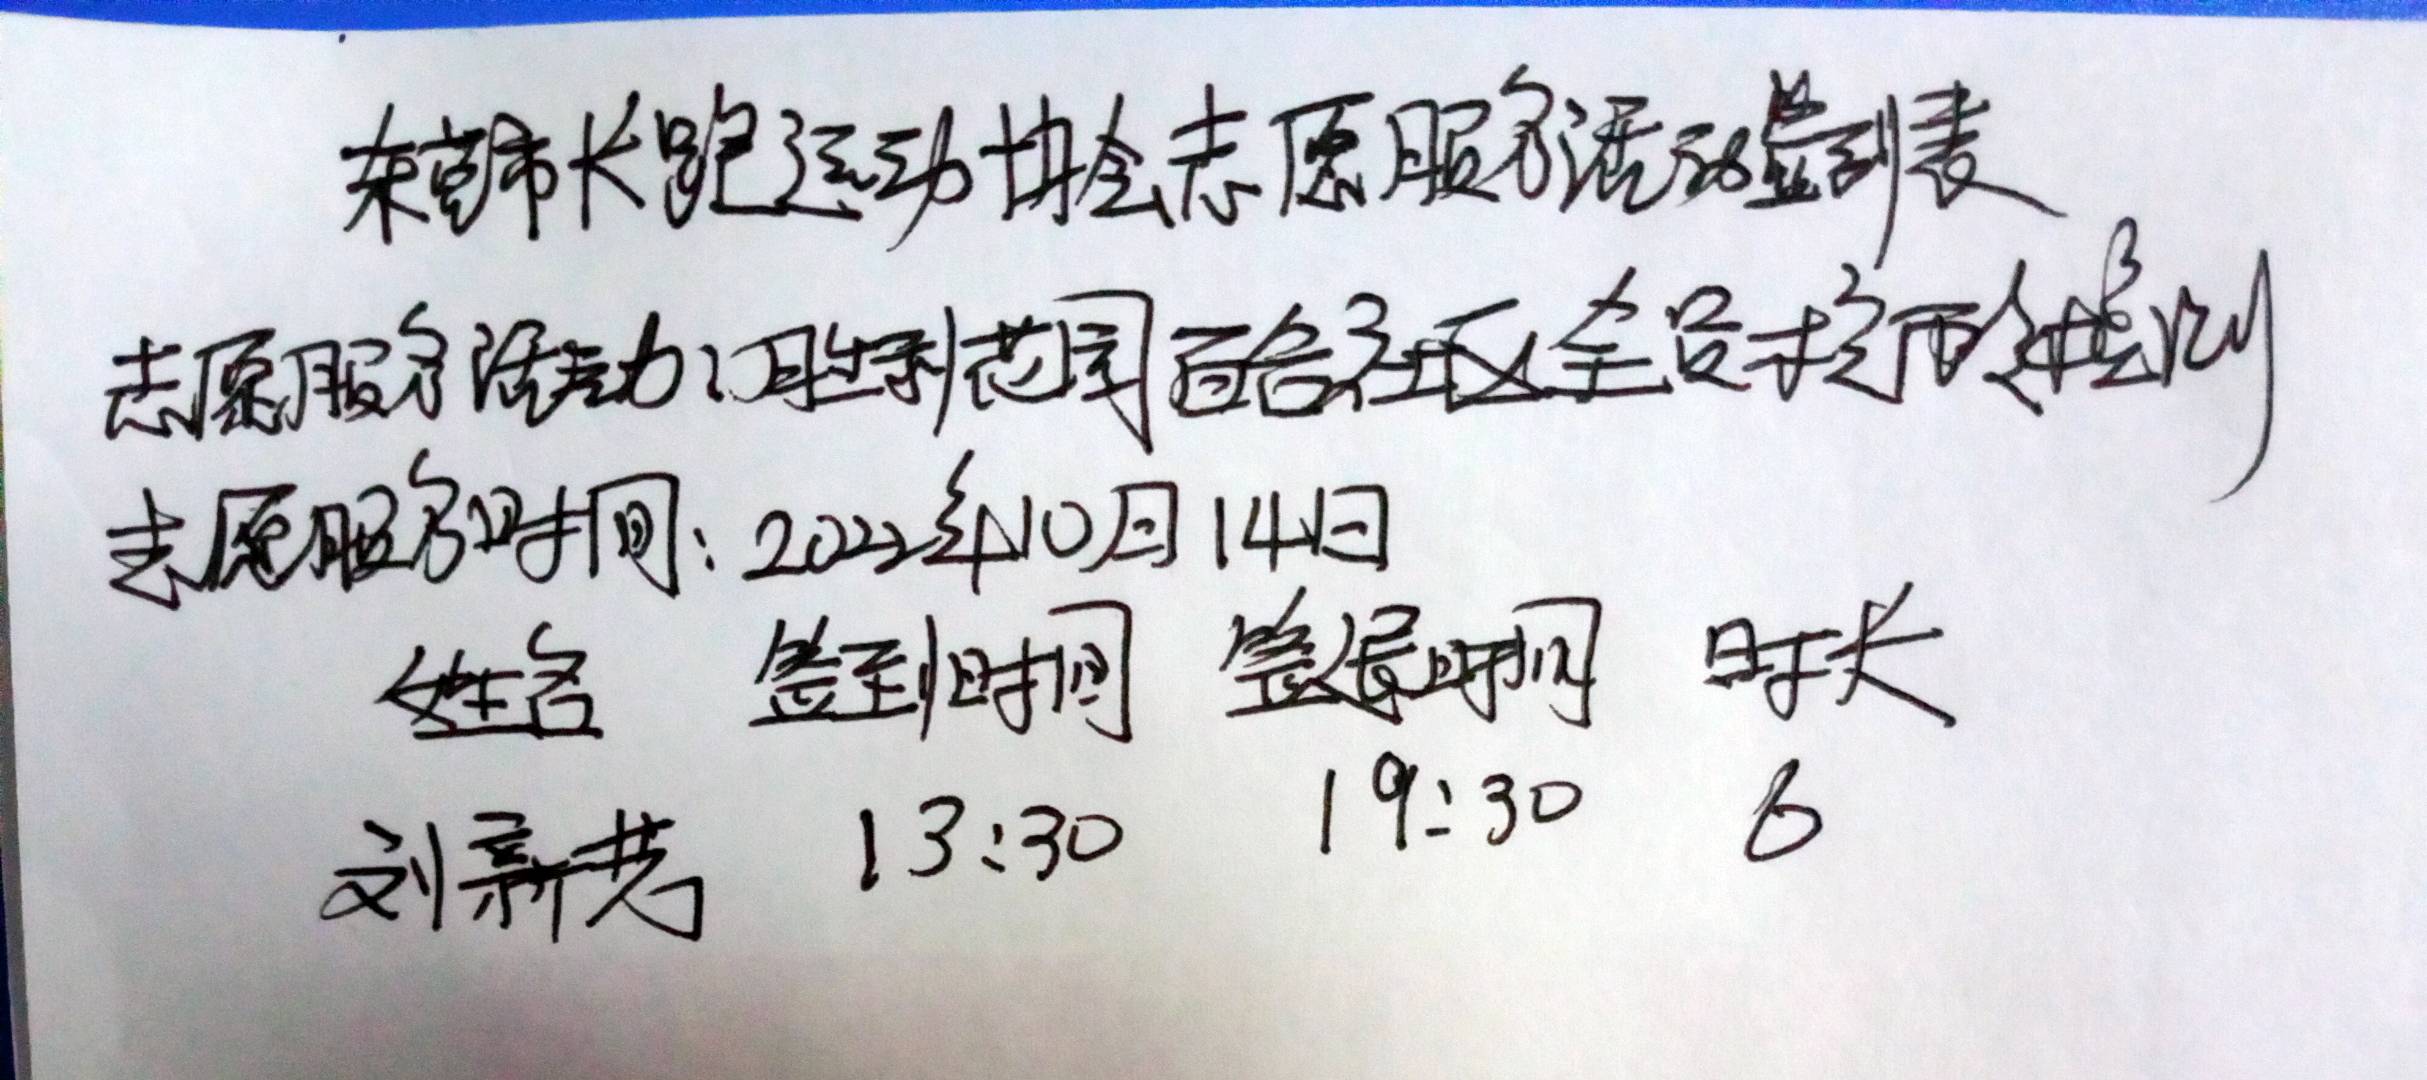 东莞市长跑运动协会志愿服务活动签到表
志愿服务活动：胜利花园百合社区全员核酸检测
志愿服务时间：2022年10月14日
姓名 签到时间 签退时间 时长
刘新芳 13:30 19:30 6